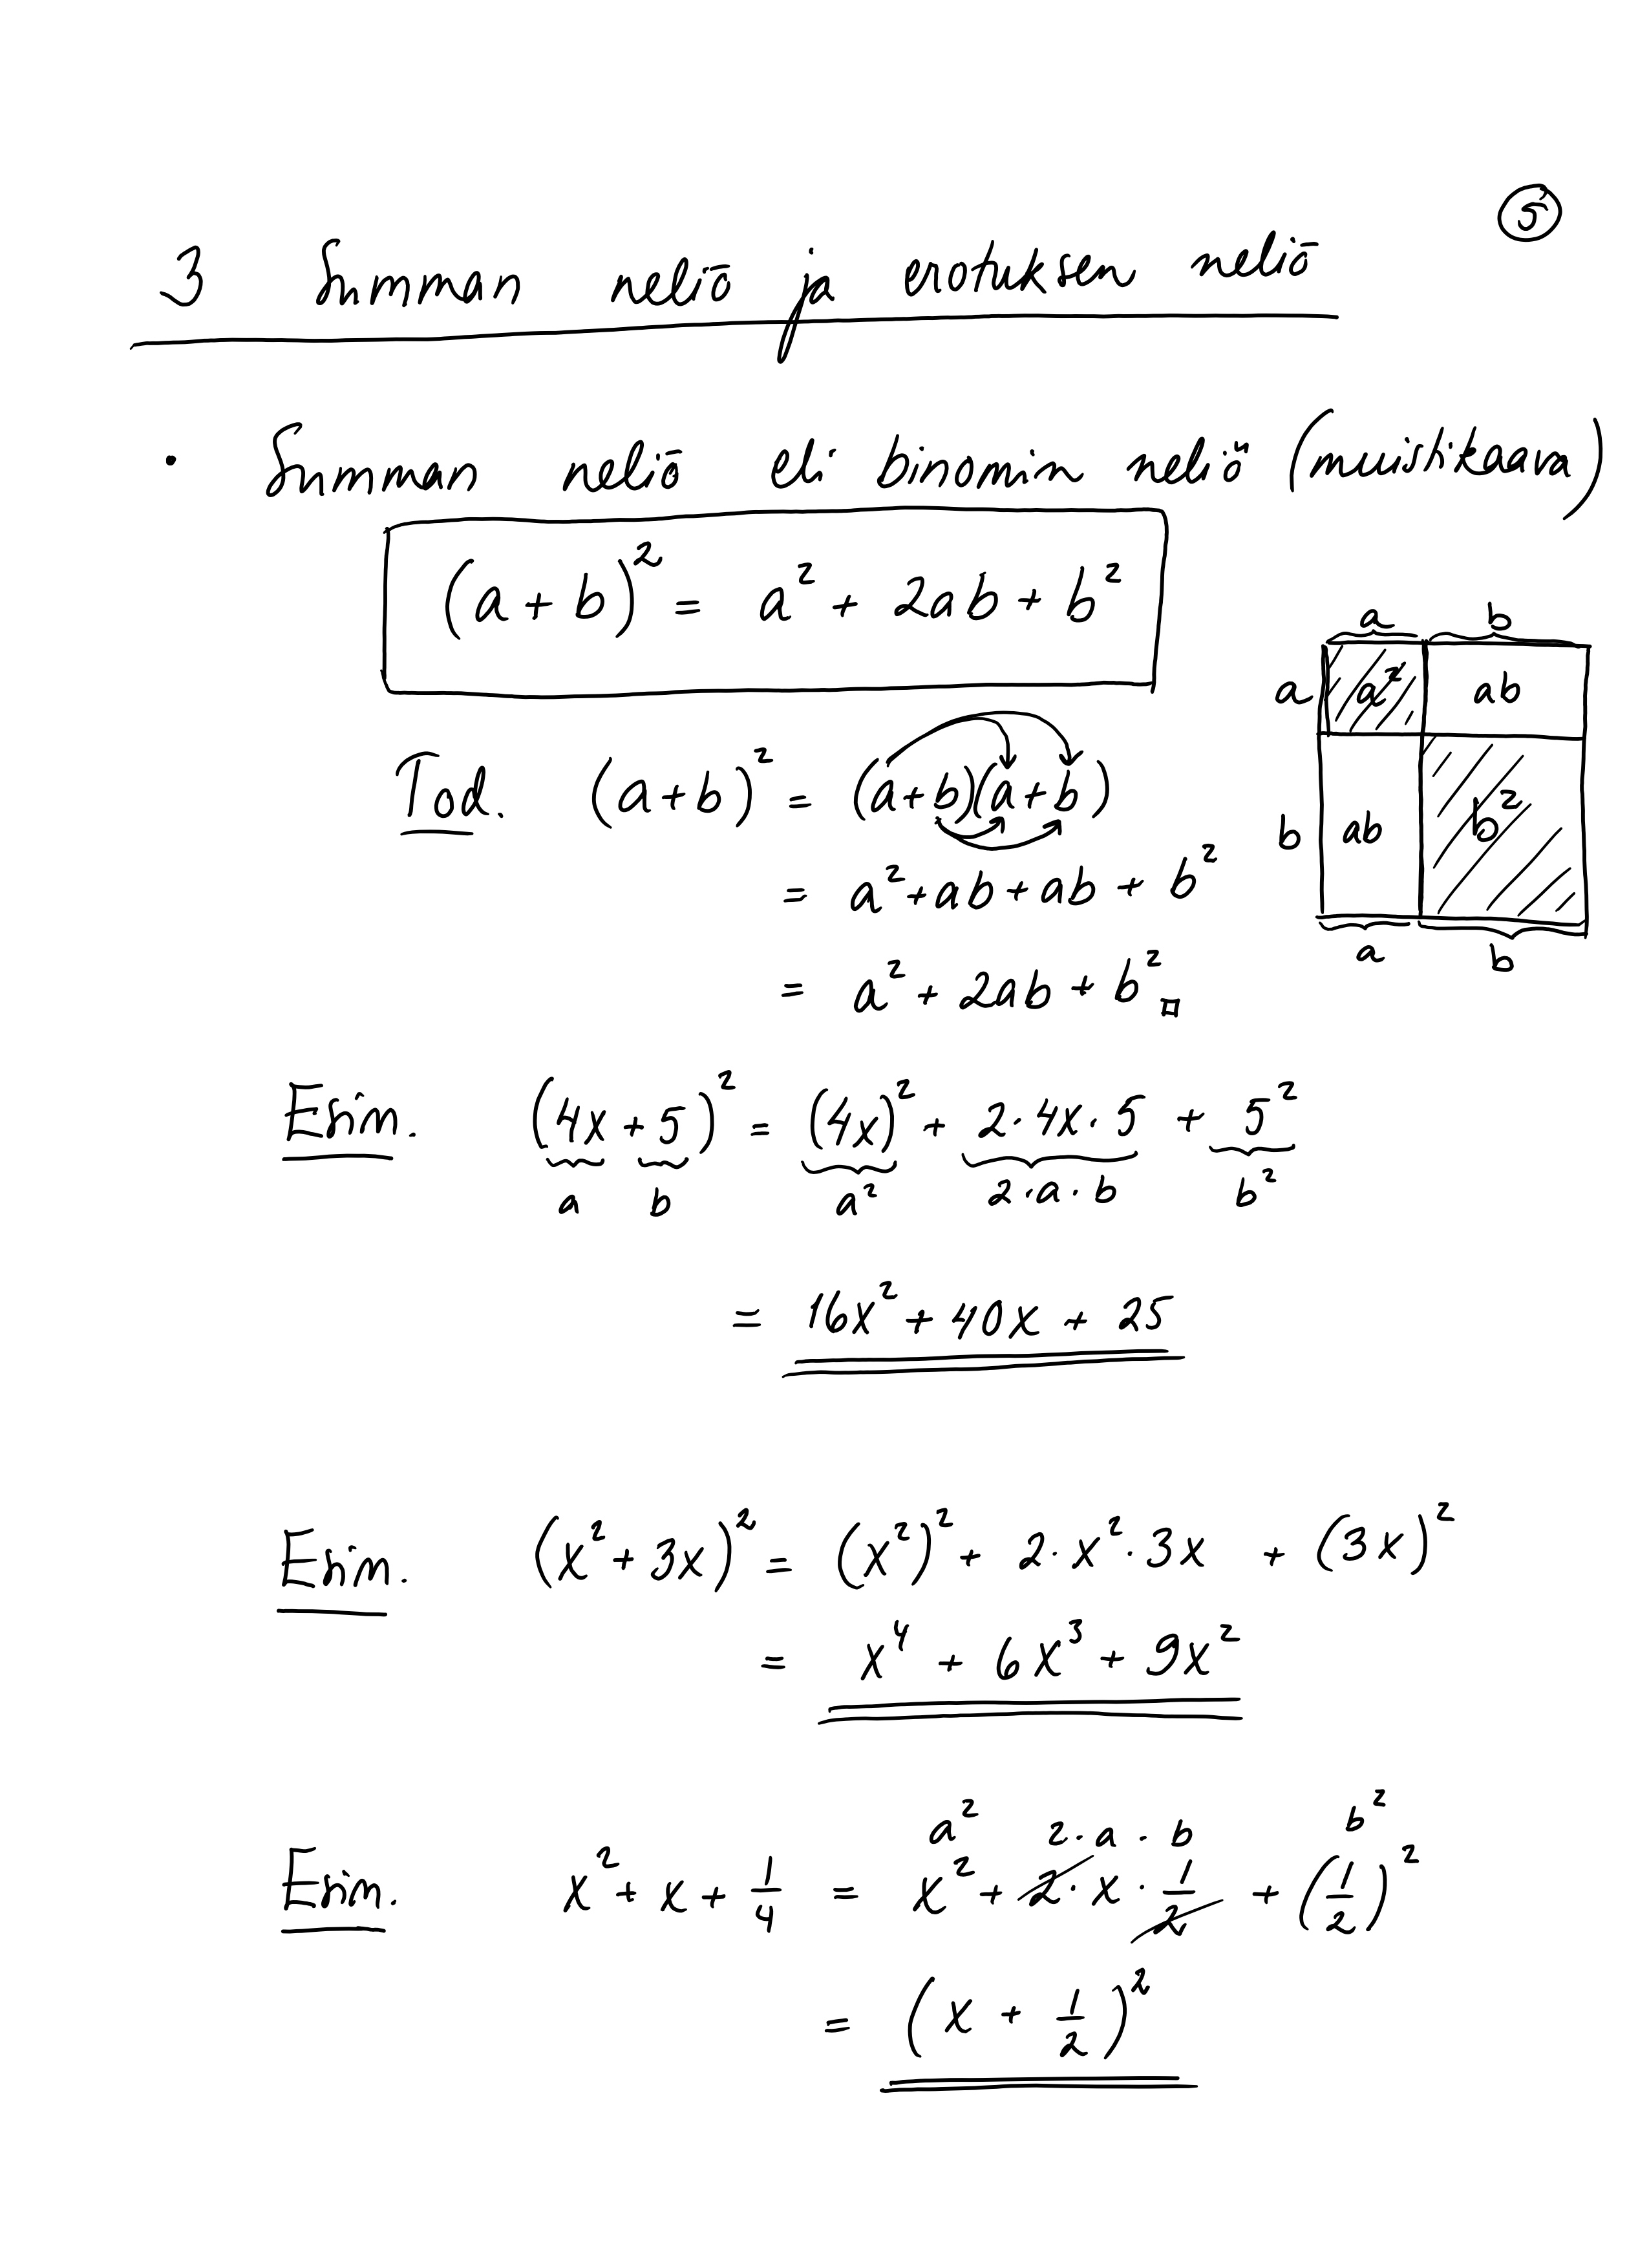 5
3 Summan neliö ja erotuksen neliö
• Summan neliö eli binomin neliö (muistikaava)
(a + b)² = a² + 2ab + b²
a b
a a² ab
b ab b²
a b
Tod. (a+b)² = (a+b)(a+b)
= a² + ab + ab + b²
= a² + 2ab + b² □
Esim. (4x + 5)² = (4x)² + 2·4x·5 + 5²
a b a² 2·a·b b²
= 16x² + 40x + 25
Esim. (x² + 3x)² = (x²)² + 2·x²·3x + (3x)²
= x⁴ + 6x³ + 9x²
a² 2·a·b b²
Esim. x² + x + 1/4 = x² + 2·x·1/2 + (1/2)²
= (x + 1/2)²